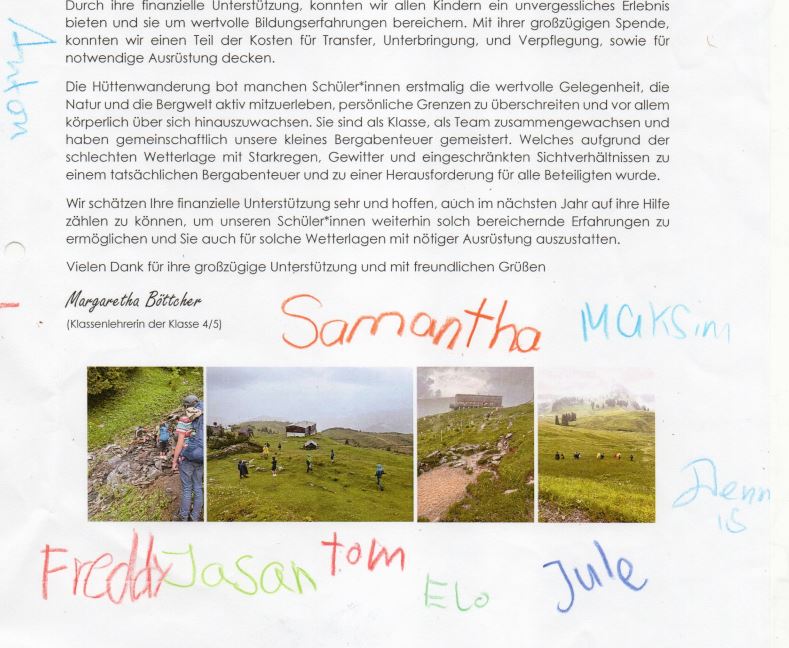 Durch ihre finanzielle Unterstützung, konnten wir allen Kindern ein unvergessliches Erlebnis
bieten und sie um wertvolle Bildungserfahrungen bereichern. Mit ihrer großzügigen Spende,
konnten wir einen Teil der Kosten für Transfer, Unterbringung, und Verpflegung, sowie für
notwendige Ausrüstung decken.
Die Hüttenwanderung bot manchen Schüler*innen erstmalig die wertvolle Gelegenheit, die
Natur und die Bergwelt aktiv mitzuerleben, persönliche Grenzen zu überschreiten und vor allem
körperlich über sich hinauszuwachsen. Sie sind als Klasse, als Team zusammengewachsen und
haben gemeinschaftlich unsere kleines Bergabenteuer gemeistert. Welches aufgrund der
schlechten Wetterlage mit Starkregen, Gewitter und eingeschränkten Sichtverhältnissen zu
einem tatsächlichen Bergabenteuer und zu einer Herausforderung für alle Beteiligten wurde.
Wir schätzen Ihre finanzielle Unterstützung sehr und hoffen, auch im nächsten Jahr auf ihre Hilfe
zählen zu können, um unseren Schüler*innen weiterhin solch bereichernde Erfahrungen zu
ermöglichen und Sie auch für solche Wetterlagen mit nötiger Ausrüstung auszustatten.
Vielen Dank für ihre großzügige Unterstützung und mit freundlichen Grüßen
Margaretha Böttcher
(Klassenlehrerin der Klasse 4/5)
Samantha
Maksim
Denn
is
Freddy
Jasan
tom
Elo
Jule